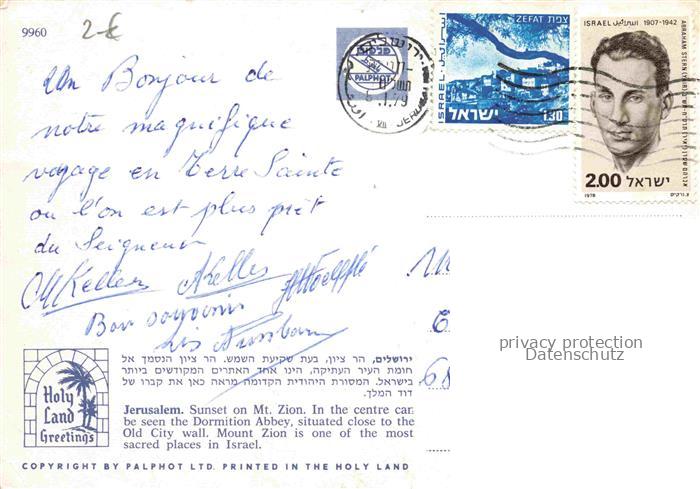 9960
2-€
פלפוט
PALPHOT
ירושלים
5.1.79
JERUSALEM
צפת ZEFAT
ISRAEL
ישראל 1.30
ISRAEL 1907-1942
ABRAHAM STERN
2.00 ישראל
1978
un Bonjour de
notre magnifique
voyage en Terre Sainte
ou l'on est plus près
du Seigneur
MKeller AKeller
Bon souvenir
68
privacy protection
Datenschutz
Holy
Land
Greetings
ירושלים, הר ציון, בעת שקיעת השמש. הר ציון הנסמך אל
חומת העיר העתיקה, הינו אחד האתרים המקודשים ביותר
בישראל. המסורת היהודית הקדומה מראה כאן את קברו של
דוד המלך.
Jerusalem. Sunset on Mt. Zion. In the centre can
be seen the Dormition Abbey, situated close to the
Old City wall. Mount Zion is one of the most
sacred places in Israel.
COPYRIGHT BY PALPHOT LTD. PRINTED IN THE HOLY LAND